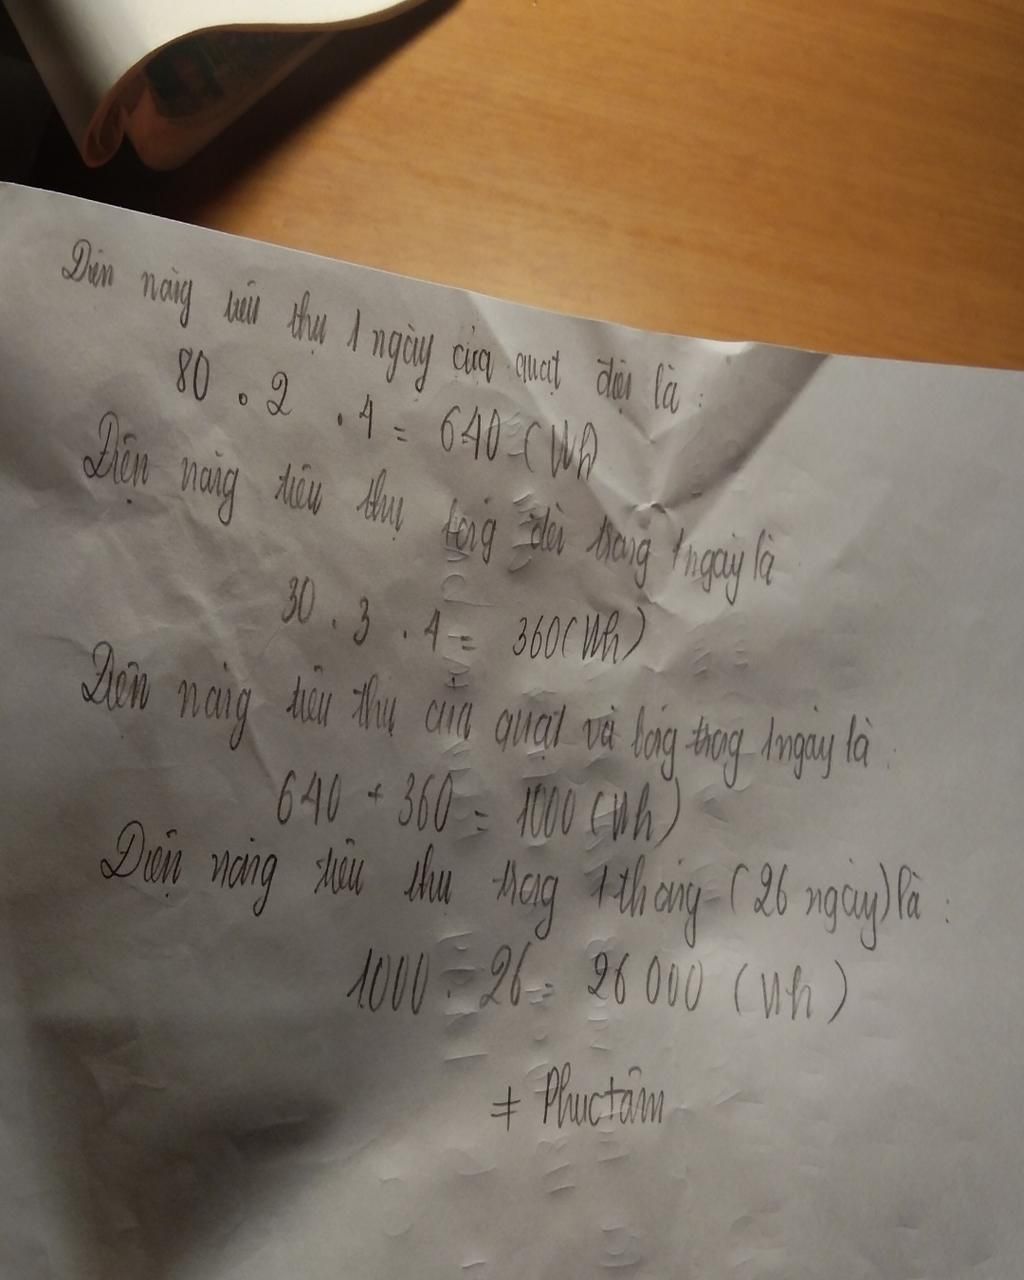 Điện năng tiêu thụ 1 ngày của quạt điện là :
80 . 2 . 4 = 640 (Wh)
Điện năng tiêu thụ bóng đèn trong 1 ngày là
30 . 3 . 4 = 360 (Wh)
Điện năng tiêu thụ của quạt và bóng trong 1 ngày là :
640 + 360 = 1000 (Wh)
Điện năng tiêu thụ trong 1 tháng (26 ngày) là :
1000 . 26 = 26 000 (Wh)
≠ Phuctâm